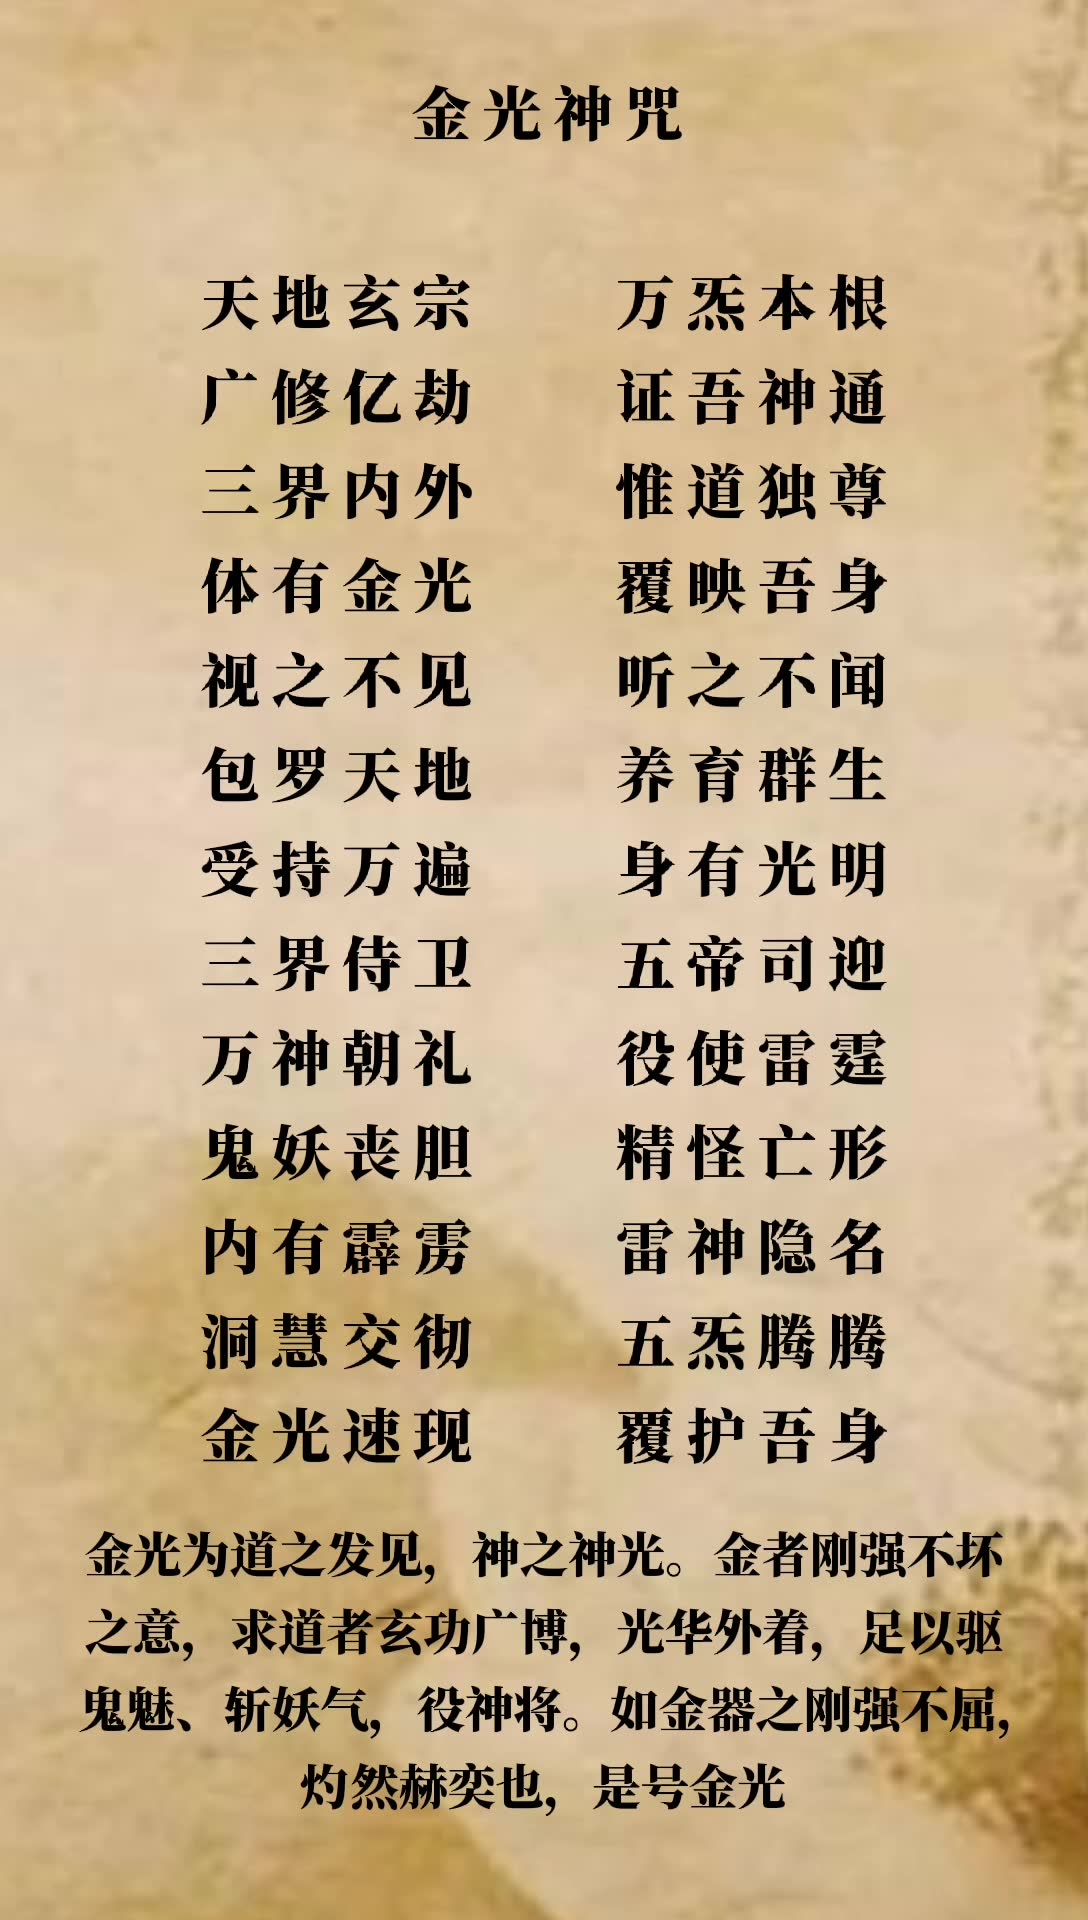 金光神咒
天地玄宗 万炁本根
广修亿劫 证吾神通
三界内外 惟道独尊
体有金光 覆映吾身
视之不见 听之不闻
包罗天地 养育群生
受持万遍 身有光明
三界侍卫 五帝司迎
万神朝礼 役使雷霆
鬼妖丧胆 精怪亡形
内有霹雳 雷神隐名
洞慧交彻 五炁腾腾
金光速现 覆护吾身
金光为道之发见，神之神光。金者刚强不坏
之意，求道者玄功广博，光华外着，足以驱
鬼魅、斩妖气，役神将。如金器之刚强不屈，
灼然赫奕也，是号金光